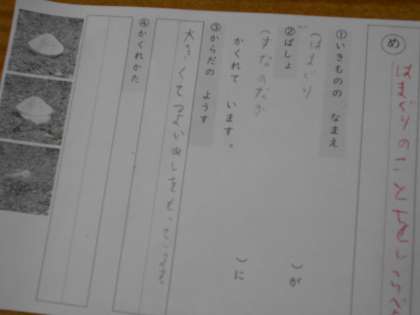 め
はまぐりの
①いきものの なまえ
(はまぐり )が
②ばしょ
(すなのなか )に
かくれて います。
③からだの ようす
大きくてつよいあしをもっている。
④かくれかた